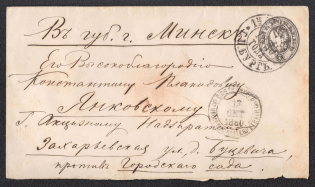 Въ губ. г. Минскъ
Его Высокоблагородію
Константину
Янковскому
Г. Акцизному Надзирателю
Захарьевская ул. д. Гуцевича,
противъ Городскаго сада.